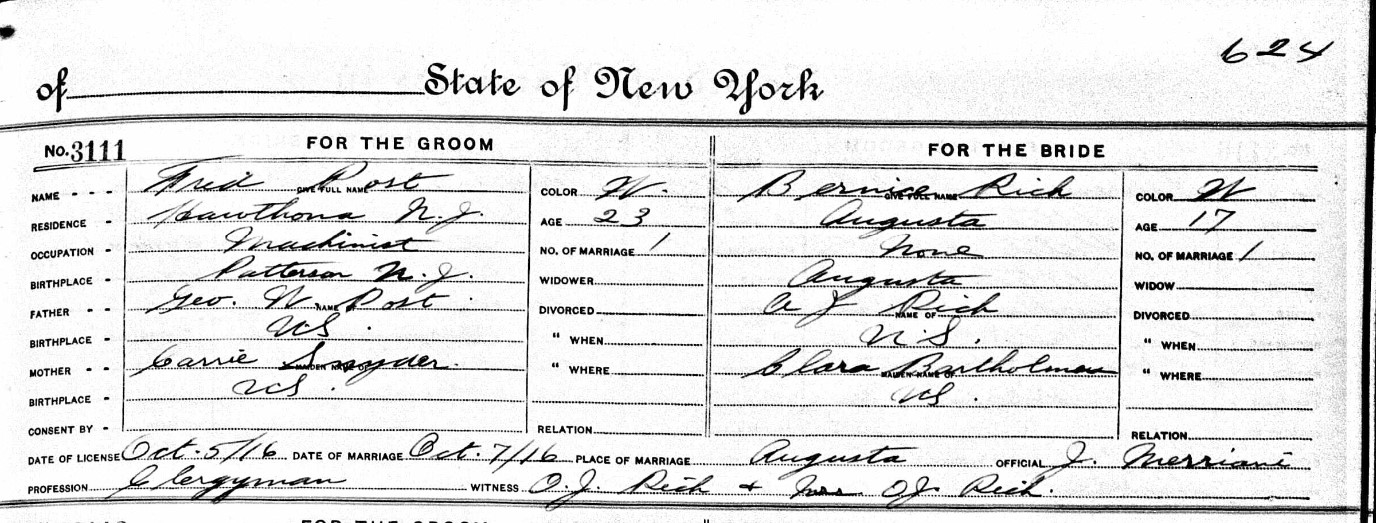 624
of State of New York
No. 3111 FOR THE GROOM FOR THE BRIDE
NAME - - - Fred Post GIVE FULL NAME COLOR W. Bernice Rich GIVE FULL NAME COLOR W
RESIDENCE - Hawthona N.J. AGE 23 Augusta AGE 17
OCCUPATION - Machinist NO. OF MARRIAGE 1 None NO. OF MARRIAGE 1
BIRTHPLACE - Patterson N.J. WIDOWER Augusta WIDOW
FATHER - - Geo. W. Post NAME OF DIVORCED A J Rich NAME OF DIVORCED
BIRTHPLACE - U.S. " WHEN U.S. " WHEN
MOTHER - - Carrie Snyder. MAIDEN NAME OF " WHERE Clara Bartholmew MAIDEN NAME OF " WHERE
BIRTHPLACE - US US.
CONSENT BY - RELATION RELATION
DATE OF LICENSE Oct. 5/16 DATE OF MARRIAGE Oct. 7/16 PLACE OF MARRIAGE Augusta OFFICIAL J.
PROFESSION Clergyman WITNESS O.J. Rich + Mrs OJ Rich.
FOR THE GROOM